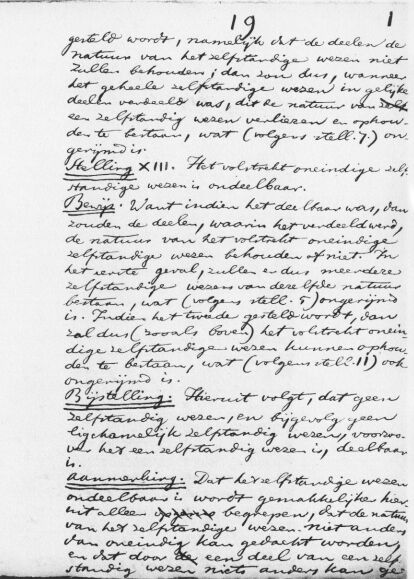 19 1
gesteld wordt, namelijk dat de deelen de
natuur van het zelfstandige wezen niet
zullen behouden; dan zou dus, wanneer
het geheele zelfstandige wezen in gelijke
deelen verdeeld was, dit de natuur van zelf
een zelfstandig wezen verliezen en ophou-
den te bestaan, wat (volgens stell. 7.) on-
gerijmd is.
Stelling XIII. Het volstrekt oneindige zelf-
standige wezen is ondeelbaar.
Bewijs. Want indien het deelbaar was, dan
zouden de deelen, waarin het verdeeld werd,
de natuur van het volstrekt oneindige
zelfstandige wezen behouden of niet. In
het eerste geval, zullen er dus meerdere
zelfstandige wezens van dezelfde natuur
bestaan, wat (volgens stell. 5) ongerijmd
is. Indien het tweede gesteld wordt, dan
zal dus (zooals boven) het volstrekt onein-
dige zelfstandige wezen kunnen ophou-
den te bestaan, wat (volgens stell. 11) ook
ongerijmd is.
Bijstelling. Hieruit volgt, dat geen
zelfstandig wezen, en bijgevolg geen
ligchamelijk zelfstandig wezen, voorzoo-
ver het een zelfstandig wezen is, deelbaar
is.
Aanmerking. Dat het zelfstandige wezen
ondeelbaar is wordt gemakkelijker hier-
uit alleen begrepen, dat de natuur
van het zelfstandige wezen niet anders
van oneindig kan gedacht worden,
en dat door een deel van een zelf-
standig wezen niets anders kan ge